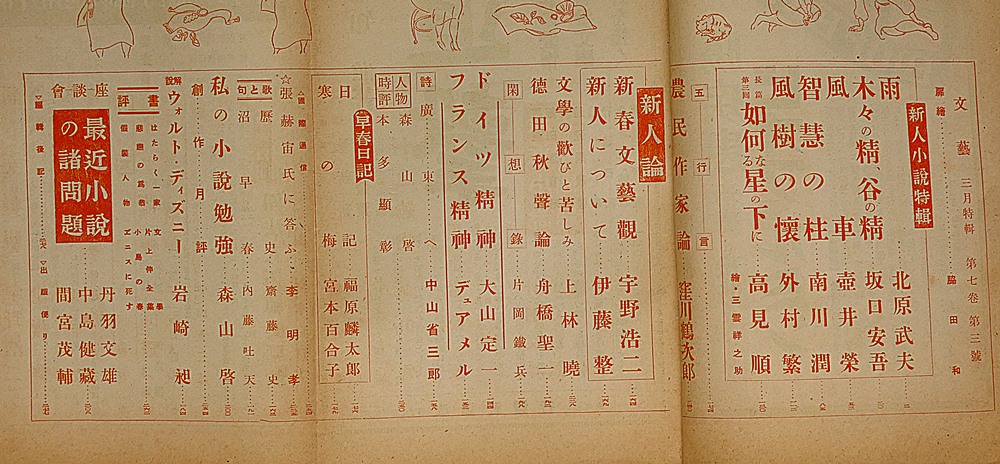 文藝 三月特輯 第七卷 第三號
扉繪 脇田和
新人小說特輯
雨 北原武夫
木々の精、谷の精 坂口安吾
風車 壺井榮
智慧の柱 南川潤
風樹の懷 外村繁
長篇第三回 如何なる星の下に 高見順
繪・三雲祥之助
五行言
農民作家論 窪川鶴次郎
新人論
新春文藝觀 宇野浩二
新人について 伊藤整
文學の歡びと苦しみ 上林曉
德田秋聲論 舟橋聖一
閑想錄 片岡鐵兵
ドイツ精神 大山定一
フランス精神 デュアメル
詩 廣東へ 中山省三郎
人物時評
森山啓
本多顯彰
早春日記
日記 福原麟太郎
寒の梅 宮本百合子
△國際通信
☆張赫宙氏に答ふ 李明孝
歌と句
歷史 齋藤史
沼早春 內藤吐天
私の小說勉強 森山啓
創作月評
解說 ウォルト・ディズニー 岩崎昶
書評
はたらく一家
悲慘の爲
假裝人物
片上伸全集
小島の春
ズニスに死す
座談會
最近小說の諸問題
丹羽文雄
中島健藏
間宮茂輔
▽編輯後記
▽出版便り